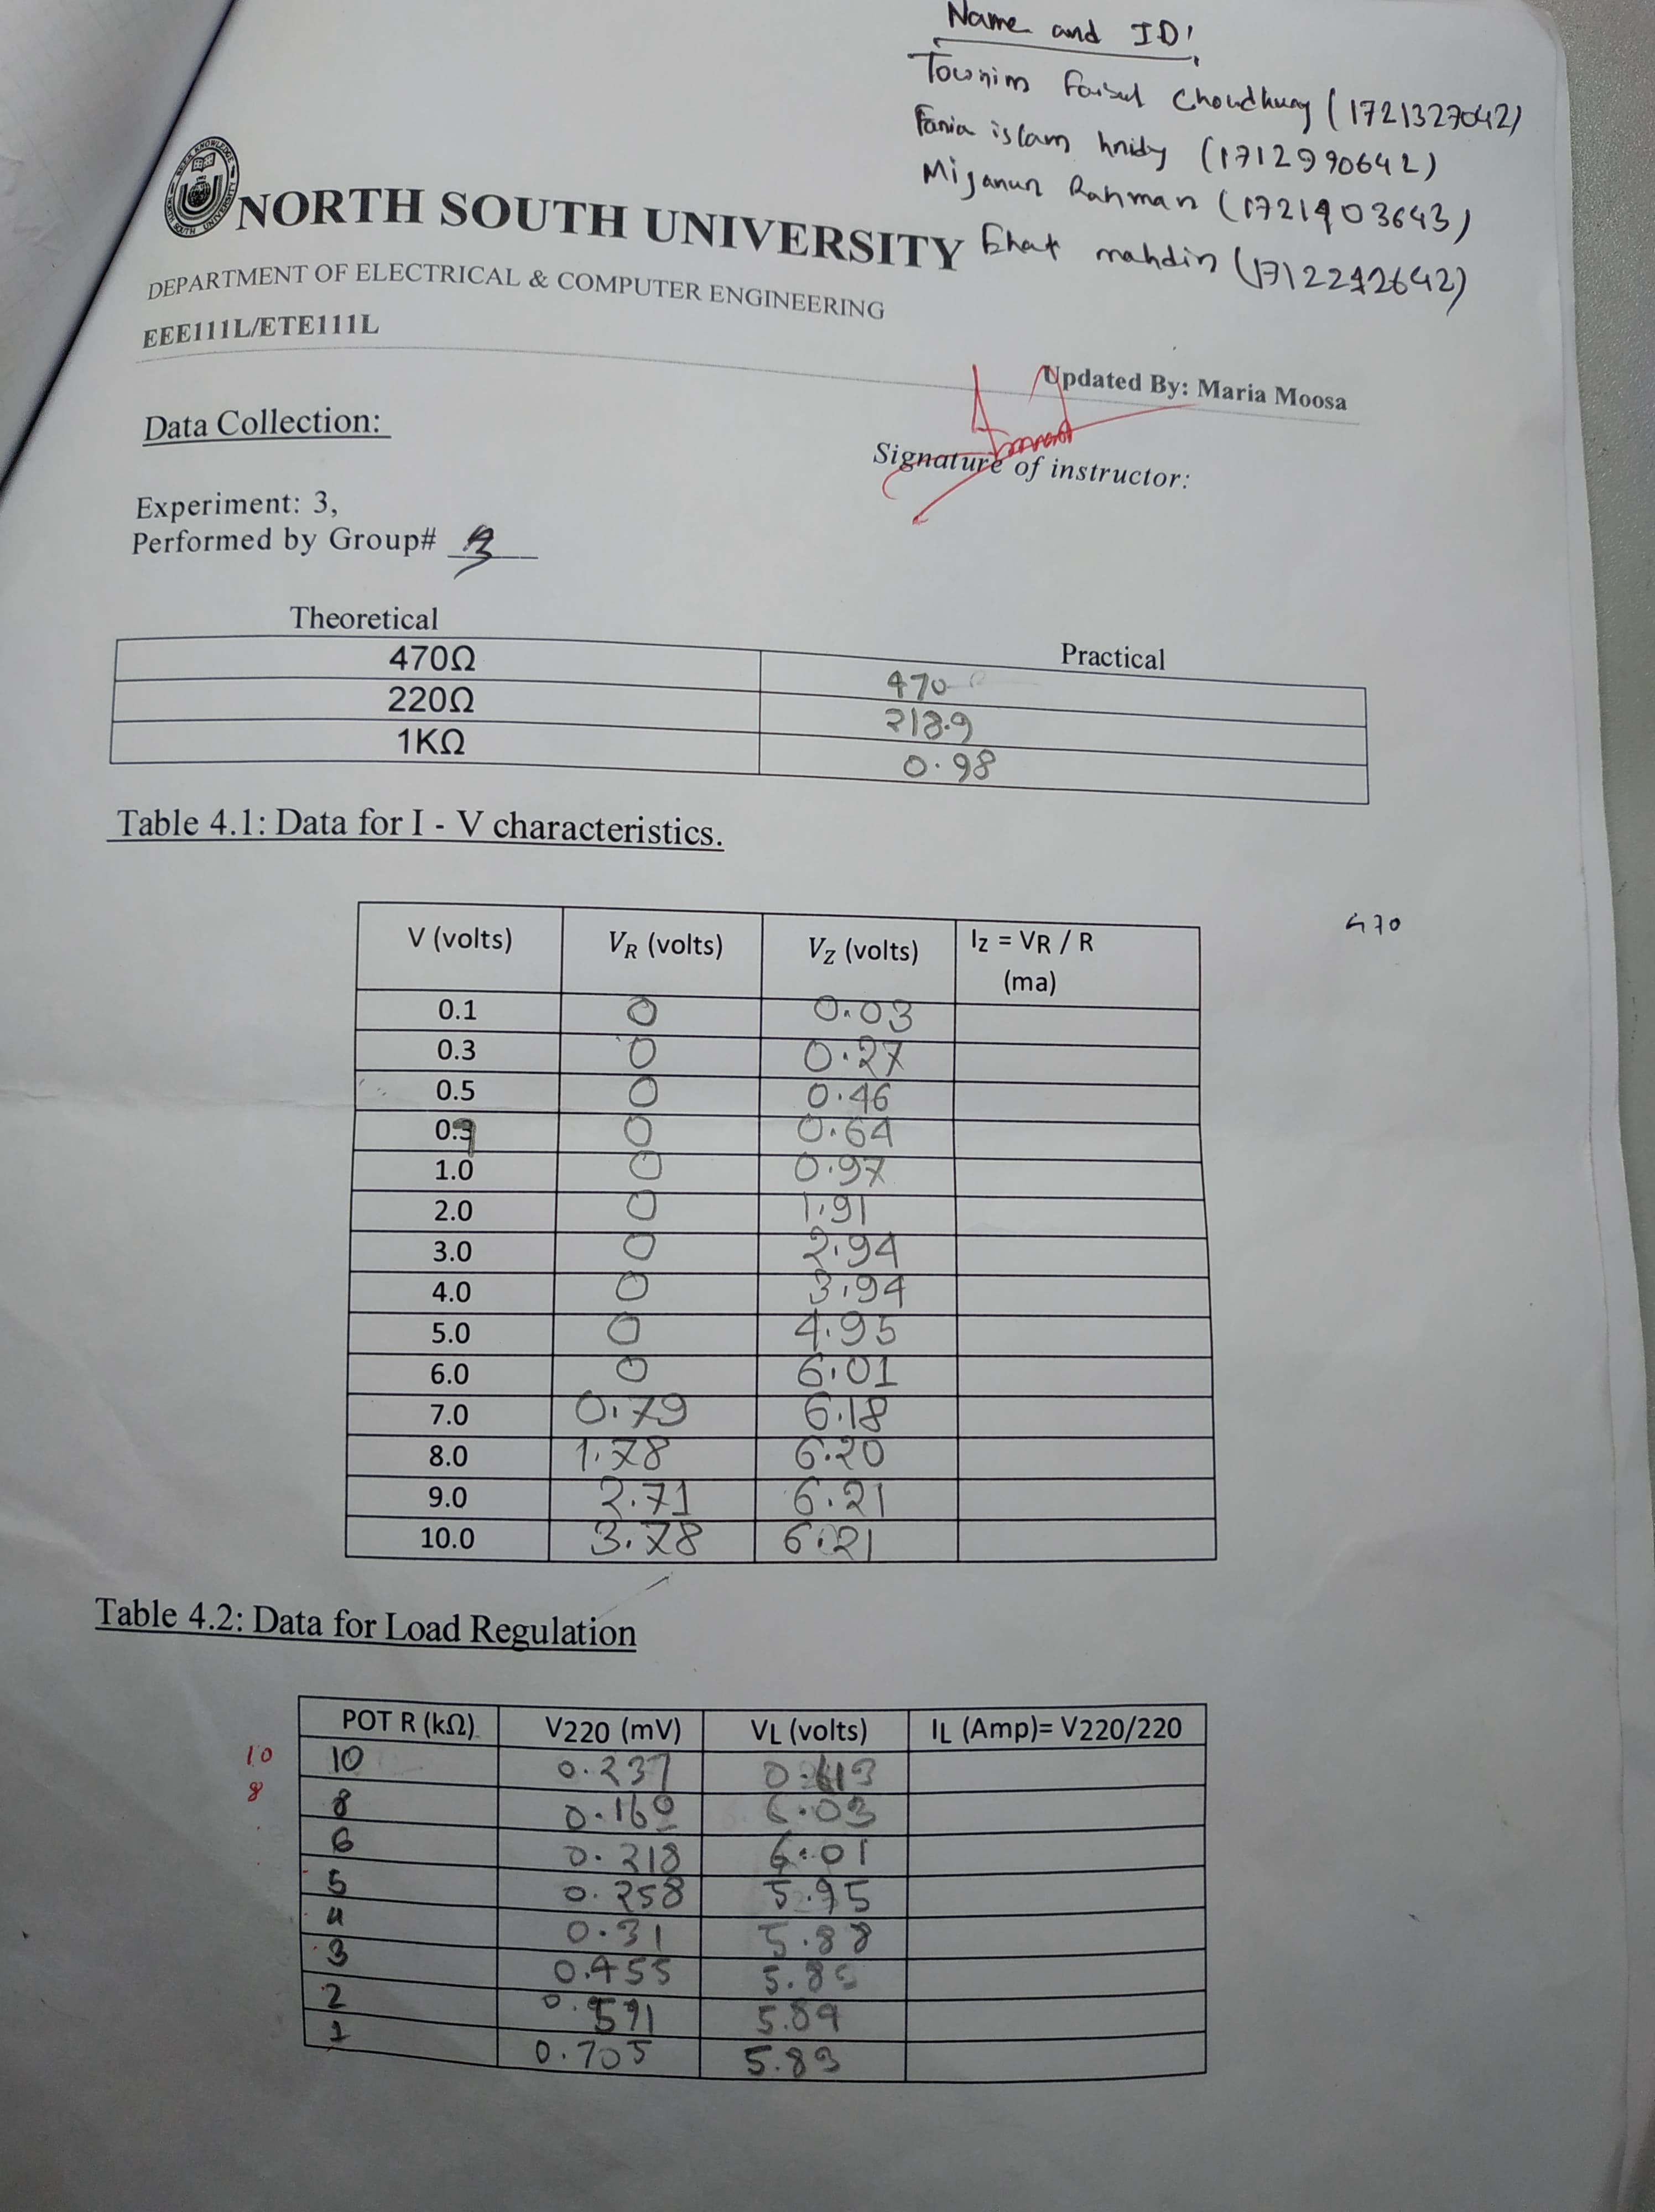 Name and ID:
Townim Faisul Choudhury (1721327042)
Fania islam hridy (1712990642)
Mijanur Rahman (1721903643)
NORTH SOUTH UNIVERSITY
mahdin
DEPARTMENT OF ELECTRICAL & COMPUTER ENGINEERING
EEE111L/ETE111L
Updated By: Maria Moosa
Data Collection:
Signature of instructor:
Experiment: 3,
Performed by Group# 3
Theoretical Practical
470Ω 470
220Ω 218.9
1KΩ 0.98
Table 4.1: Data for I - V characteristics.
470
V (volts) VR (volts) VZ (volts) IZ = VR / R
(ma)
0.1 0 0.03
0.3 0 0.27
0.5 0 0.46
0.7 0 0.64
1.0 0 0.97
2.0 0 1.91
3.0 0 2.94
4.0 0 3.94
5.0 0 4.95
6.0 0 6.01
7.0 0.79 6.18
8.0 1.78 6.20
9.0 2.71 6.21
10.0 3.78 6.21
Table 4.2: Data for Load Regulation
POT R (kΩ) V220 (mV) VL (volts) IL (Amp)= V220/220
10 10 0.237
8 8 0.160 6.03
6 0.218 6.01
5 0.258 5.95
4 0.31 5.88
3 0.455
2 0.591 5.84
1 0.705 5.83